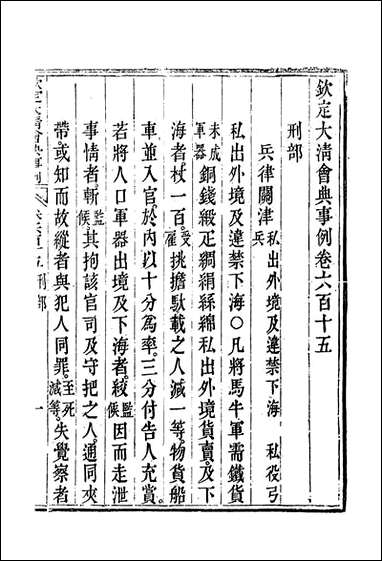 欽定大清會典事例卷六百十五
刑部
兵律關津 私出外境及違禁下海 私役弓兵
私出外境及違禁下海○凡將馬牛軍需鐵貨
未成軍器銅錢緞疋綢絹絲綿私出外境貨賣及下
海者杖一百受雇挑擔馱載之人減一等物貨船
車並入官於內以十分為率三分付告人充賞
若將人口軍器出境及下海者絞監候因而走泄
事情者斬監候其拘該官司及守把之人通同夾
帶或知而故縱者與犯人同罪至死減等失覺察者
欽定大清會典事例 卷六百十五 刑部 一